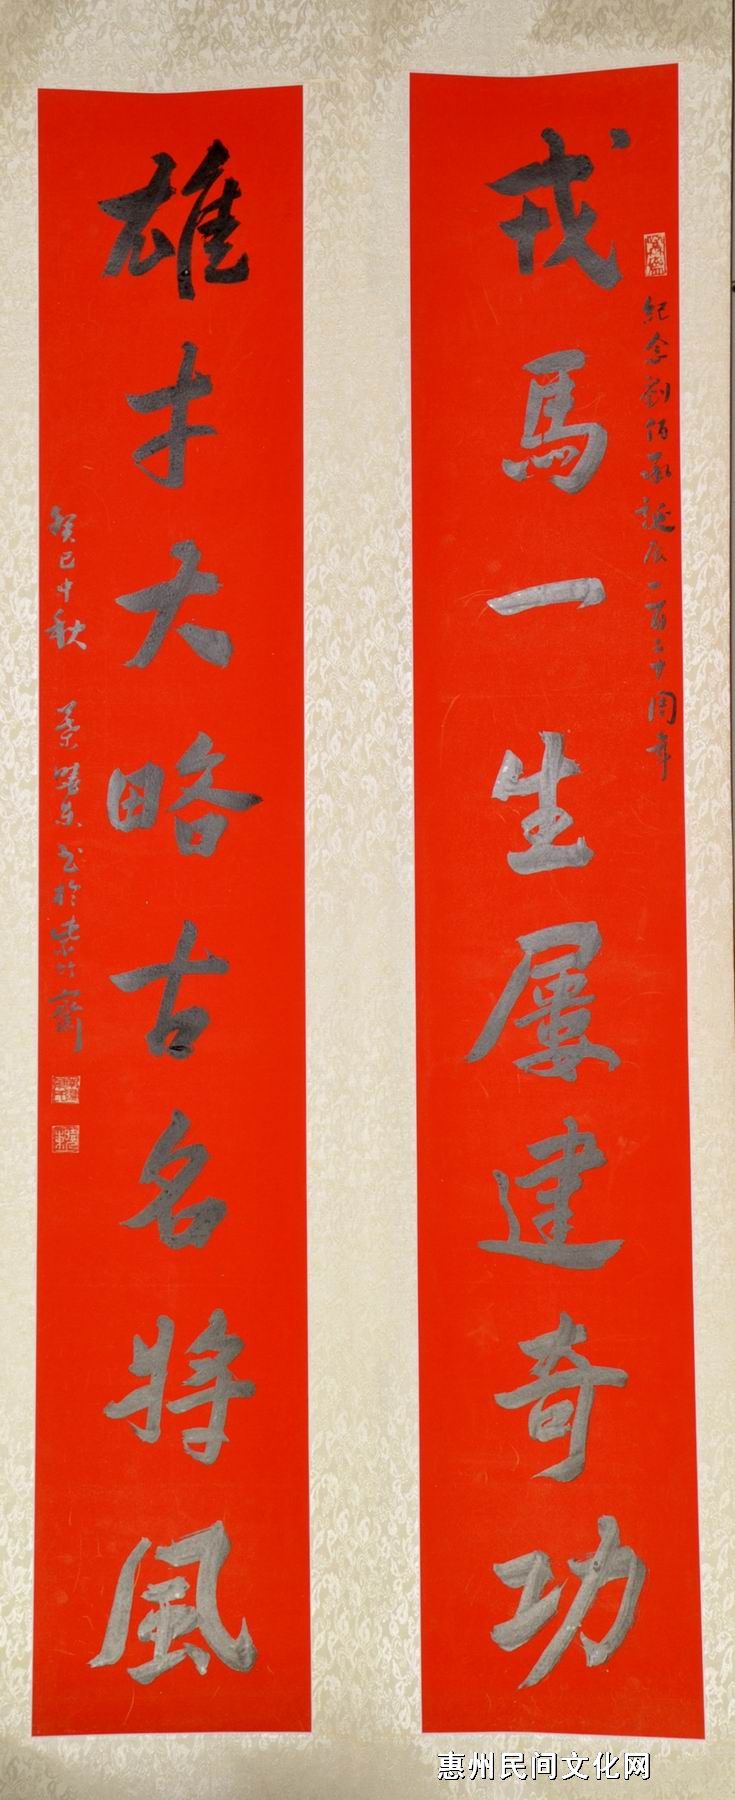 戎馬一生屢建奇功
紀念劉伯承誕辰一百二十周年
雄才大略古名將風
癸巳中秋 書於紫竹齋
惠州民间文化网